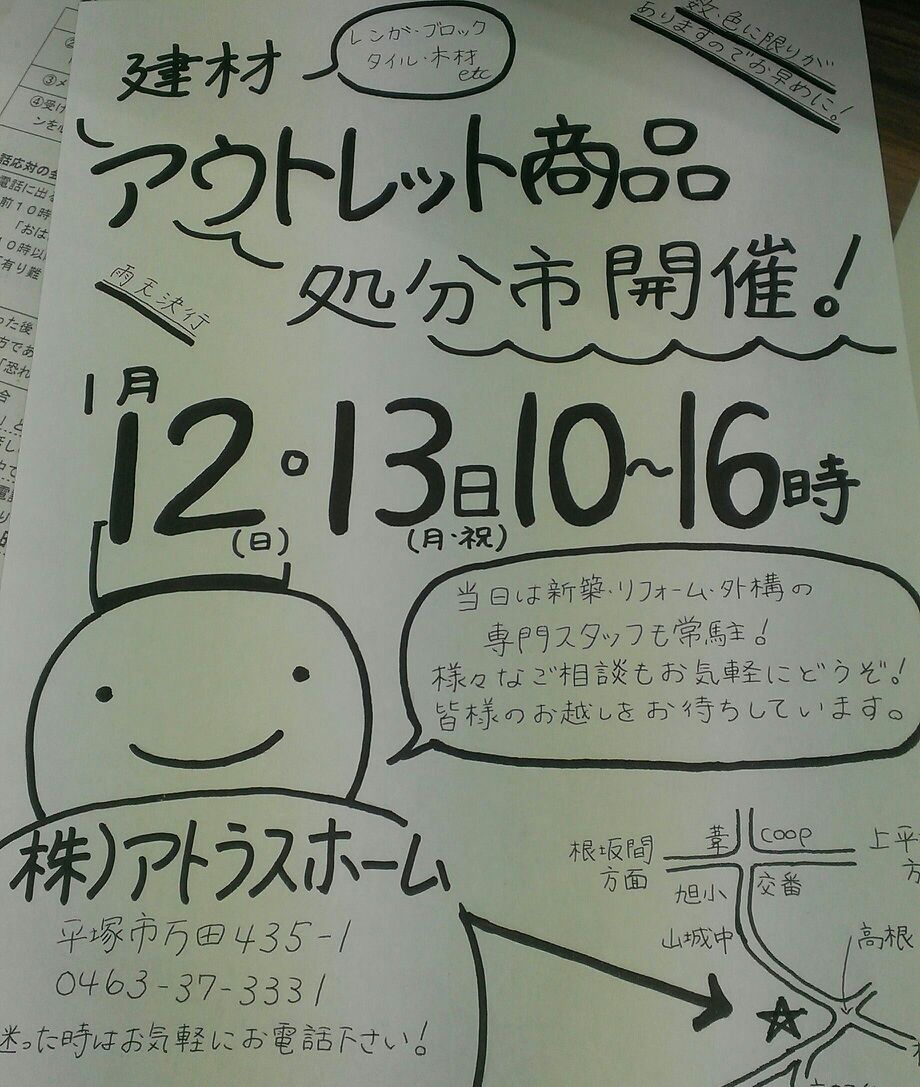 建材
レンガ・ブロック
タイル・木材
etc
数・色に限りが
ありますのでお早めに!
アウトレット商品
処分市開催!
雨天決行
1月
12・13日10〜16時
(日)
(月・祝)
当日は新築・リフォーム・外構の
専門スタッフも常駐!
様々なご相談もお気軽にどうぞ!
皆様のお越しをお待ちしています。
株)アトラスホーム
平塚市万田435-1
0463-37-3331
迷った時はお気軽にお電話下さい!
根坂間
方面
葦
coop
上平
方
旭小
交番
山城中
高根
③メ
④受け
ンを
話応対の
電話に出
前10時
「おは
10時以
有り難
った後
方であ
「恐れ
合